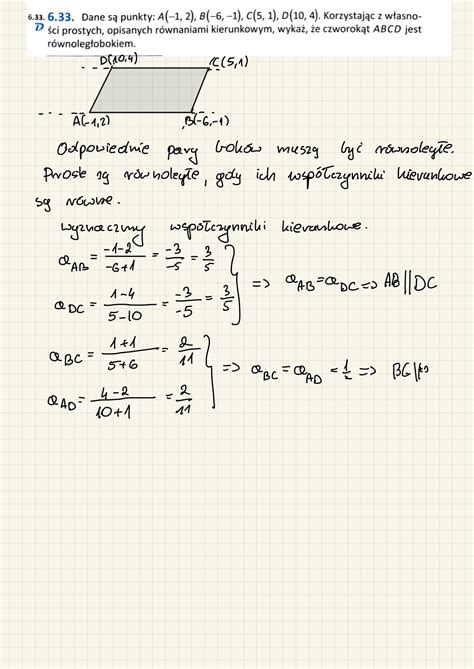 6.33. 6.33. Dane są punkty: A(−1, 2), B(−6, −1), C(5, 1), D(10, 4). Korzystając z własno-
D ści prostych, opisanych równaniami kierunkowym, wykaż, że czworokąt ABCD jest
równoległobokiem.
D(10,4) C(5,1)
A(-1,2) B(-6,-1)
Odpowiednie pary boków muszą być równoległe.
Proste są równoległe, gdy ich współczynniki kierunkowe
są równe.
Wyznaczmy współczynniki kierunkowe.
a_AB = (-1-2)/(-6+1) = (-3)/(-5) = 3/5
a_DC = (1-4)/(5-10) = (-3)/(-5) = 3/5
=> a_AB = a_DC => AB || DC
a_BC = (1+1)/(5+6) = 2/11
a_AD = (4-2)/(10+1) = 2/11
=> a_BC = a_AD = 1/2 =>